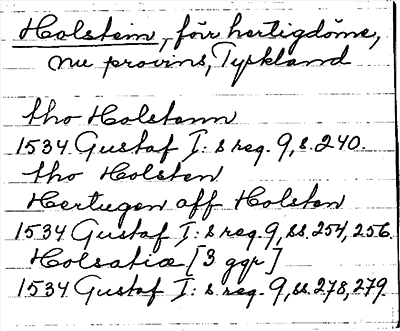 Holstein, förr hertigdöme,
nu provins, Tyskland
tho Holstenn
1534 Gustaf I: s reg. 9, s. 240.
tho Holsten
Hertugen aff Holsten
1534 Gustaf I: s reg. 9, ss. 254, 256.
Holsatia [3 ggr]
1534 Gustaf I: s reg. 9, ss. 278, 279.